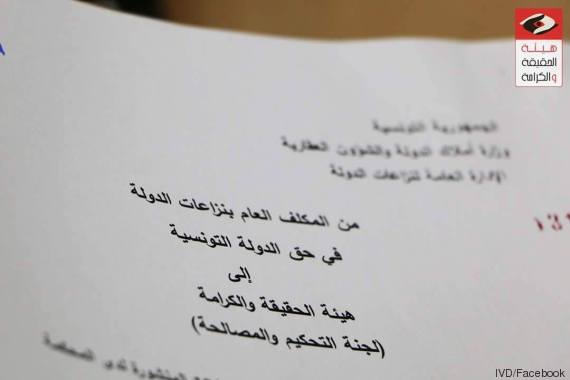 هيئة
الحقيقة
والكرامة
الجمهورية التونسية
وزارة أملاك الدولة والشؤون العقارية
الإدارة العامة لنزاعات الدولة
من المكلف العام بنزاعات الدولة
في حق الدولة التونسية
إلى
هيئة الحقيقة والكرامة
(لجنة التحكيم والمصالحة)
المنشورة لدى المحكمة
IVD/Facebook